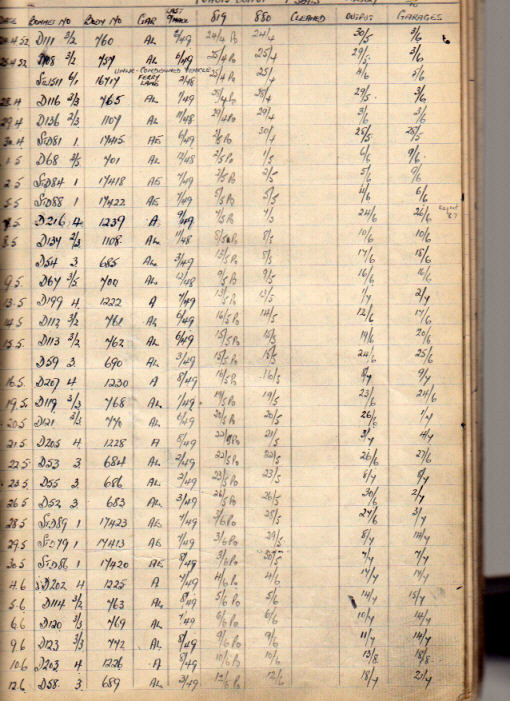 DATE BONNET NO BODY NO GAR LAST 819 880 CLEANED OUTPUT GARAGES
24.4.52 D111 3/2 760 AL 5/49 24/4 Po 24/4 30/5 3/6
25.4.52 D108 3/2 757 AL 6/49 25/4 Po 25/4 29/5 3/6
UNDER-CONDEMNED VEHICLE
6/1 16717 2/48 25/4 Po 25/4 4/6 5/6
28.4 D116 2/3 765 AL 7/49 28/4 29/5 3/6
29.4 D136 2/3 1107 AL 11/48 29/4 Po 29/4 3/6 3/6
30.4 STD81 1 17415 AE 6/49 2/5 Po 30/4 28/5 28/5
1.5 D68 3/5 701 AL 12/48 2/5 Po 1/5 6/6 9/6
2.5 STD84 1 17418 AE 7/49 2/5 5/6 9/6
5.5 STD88 1 17422 AE 7/49 5/5 Po 5/5 4/6 6/6
7.5 D216 4 1239 A 9/49 7/5 Po 7/5 24/6 26/6
8.5 D137 2/3 1108 AL 11/48 8/5 Po 8/5 10/6 10/6
D54 3 685 AL 3/49 13/5 Po 8/5 17/6 18/6
9.5 D67 3/5 700 AL 12/48 9/5 Po 9/5 16/6 16/6
13.5 D199 4 1222 A 7/49 13/5 Po 13/5 1/7 2/7
14.5 D112 3/2 761 AL 6/49 16/5 Po 14/5 12/6 17/6
15.5 D113 3/2 762 AL 6/49 15/5 Po 15/5 19/6 20/6
D59 3 690 AL 3/49 15/5 Po 15/5 24/6 25/6
16.5 D207 4 1230 A 8/49 16/5 Po 16/5 8/7 9/7
19.5 D119 3/3 768 AL 7/49 19/5 Po 19/5 23/6 24/6
20.5 D121 3/3 770 AL 6/49 20/5 Po 20/5 26/6 1/7
21.5 D205 4 1228 A 8/49 22/5 Po 21/5 3/7 4/7
22.5 D53 3 684 AL 2/49 22/5 Po 22/5 26/6 27/6
23.5 D55 3 686 AL 2/49 23/5 Po 23/5 8/7 8/7
26.5 D52 3 683 AL 3/49 26/5 Po 26/5 30/6 2/7
28.5 STD89 1 17423 AE 7/49 3/6 Po 28/5 27/6 3/7
29.5 STD79 1 17413 AE 5/49 3/6 Po 29/5 8/7 14/7
30.5 STD86 1 17420 AE 8/49 3/6 Po 30/5 7/7 7/7
4.6 D202 4 1225 A 7/49 4/6 Po 4/6 17/7 17/7
5.6 D114 3/2 763 AL 8/49 5/6 Po 5/6 14/7 15/7
6.6 D120 3/3 769 AL 7/49 6/6 Po 6/6 10/7 14/7
9.6 D123 3/3 772 AL 8/49 9/6 Po 9/6 11/7 14/7
10.6 D203 4 1226 A 8/49 10/6 Po 10/6 13/8 18/8
12.6 D58 3 689 AL 3/49 12/6 Po 12/6 18/7 21/7